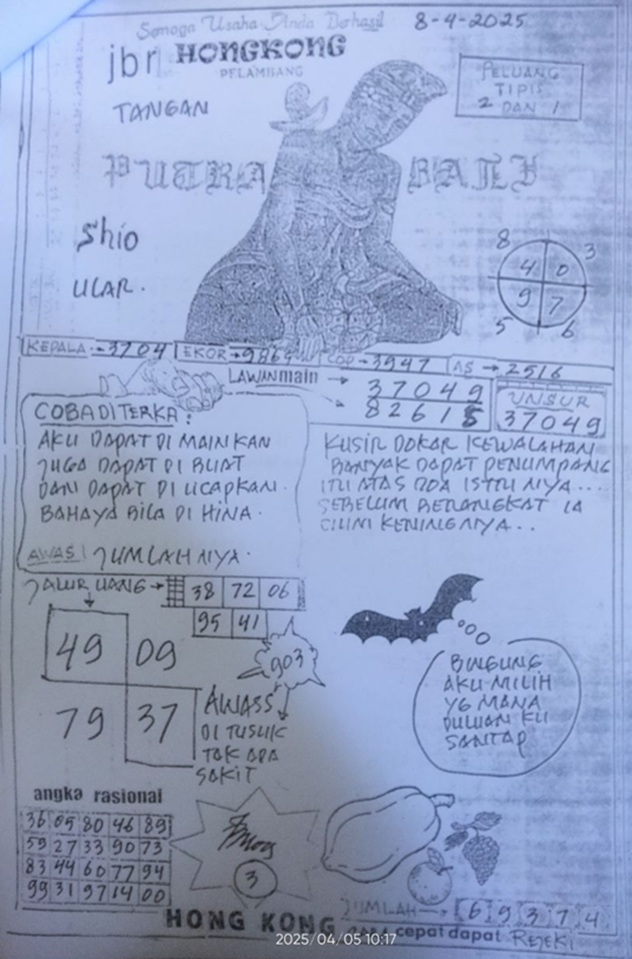 Semoga Usaha Anda Berhasil 8-4-2025
jbr HONGKONG
PELAMBANG
TANGAN
PELUANG
TIPIS
2 DAN 1
PUTRA BALI
Shio
ULAR.
8 3
4 0
9 7
5 6
KEPALA:-3704 EKOR→9864 COP→3947 AS→2516
LAWAN main → 37049
82615
UNSUR
37049
COBA DITERKA:
AKU DAPAT DI MAINKAN
JUGA DAPAT DI BUAT
DAN DAPAT DI UCAPKAN.
BAHAYA BILA DI HINA.
AWAS! JUMLAHNYA.
KUSIR DOKAR KEWALAHAN
BANYAK DAPAT PENUMPANG
ITU ATAS DOA ISTRINYA...
SEBELUM BERANGKAT IA
CIUM KENINGNYA..
JALUR UANG→ 38 72 06
95 41
49 09
79 37
903
AWASS
DI TUSUK
TAK ADA
SAKIT
BINGUNG
AKU MILIH
YG MANA
DULUAN KU
SANTAP
angka rasional
36 05 80 46 89
59 27 33 90 73
83 44 60 77 94
99 31 97 14 00
3
JUMLAH→ 6 9 3 7 4
HONG KONG cepat dapat REJEKI
2025/04/05 10:17